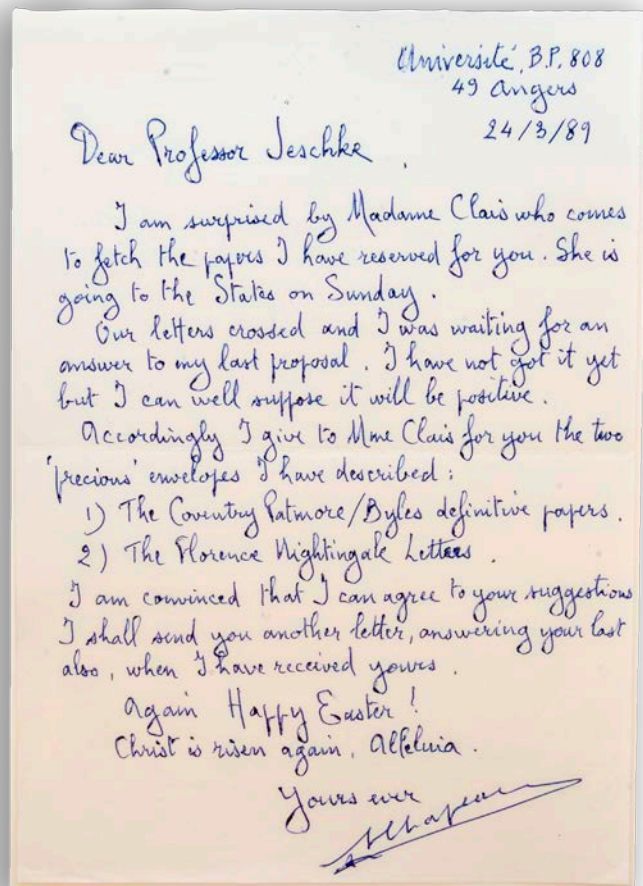 Université, B.P. 808
49 Angers
24/3/89
Dear Professor Jeschke
I am surprised by Madame Clais who comes
to fetch the papers I have reserved for you. She is
going to the States on Sunday.
Our letters crossed and I was waiting for an
answer to my last proposal. I have not got it yet
but I can well suppose it will be positive.
Accordingly I give to Mme Clais for you the two
'precious' envelopes I have described:
1) The Coventry Patmore/Byles definitive papers.
2) The Florence Nightingale Letters.
I am convinced that I can agree to your suggestions
I shall send you another letter, answering your last
also, when I have received yours.
Again Happy Easter!
Christ is risen again, Alleluia.
Yours ever